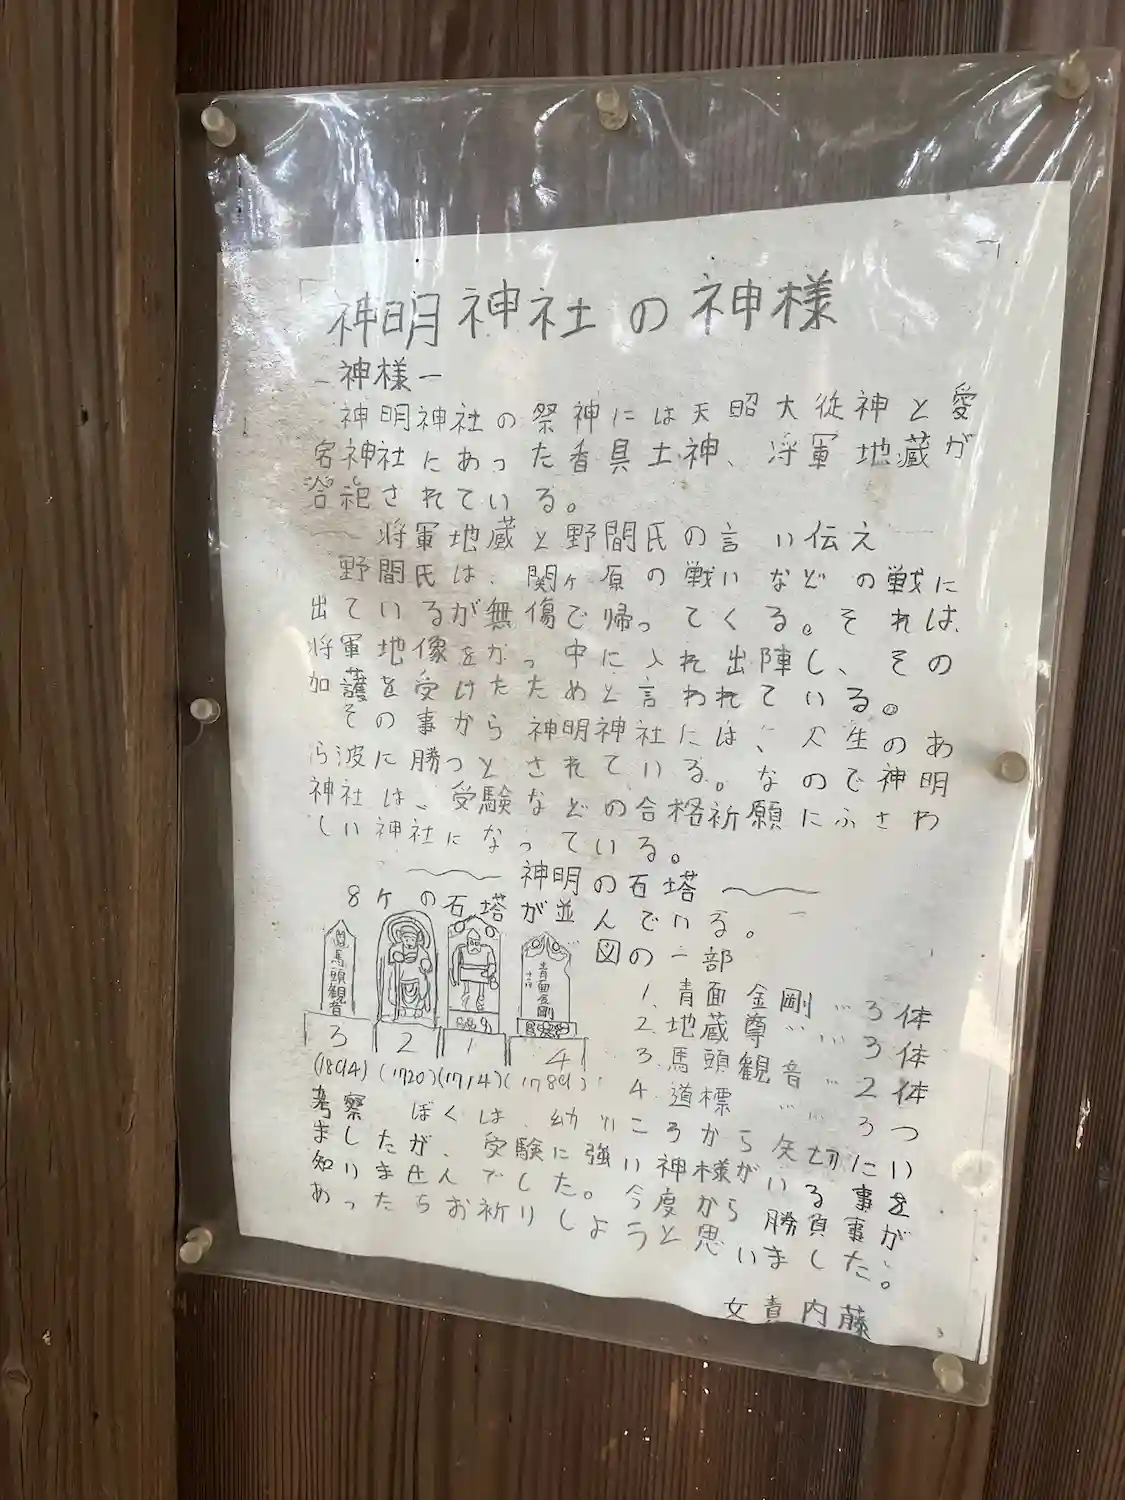 神明神社の神様
-神様-
神明神社の祭神には天昭大従神と愛
宕神社にあった香具土神、将軍地蔵が
合祀されている。
将軍地蔵と野間氏の言い伝え
野間氏は、関ヶ原の戦いなどの戦に
出ているが無傷で帰ってくる。それは、
将軍地像をかっ中に入れ出陣し、その
加護を受けたためと言われている。
その事から神明神社には、人生のあ
ら波に勝つとされている。なので神明
神社は、受験などの合格祈願にふさわ
しい神社になっている。
神明の石塔
8ヶの石塔が並んでいる。
図の一部
1.青面金剛…3体
2.地蔵尊…3体
3.馬頭観音…2体
4.道標…3つ
馬頭観音
青面金剛
3 2 1 4
(1894) (1720) (1714) (1789)
考察 ぼくは、幼いころから矢切にい
ましたが、受験に強い神様がいる事を
知りませんでした。今度から勝負事が
あったらお祈りしようと思いました。
文責 内藤